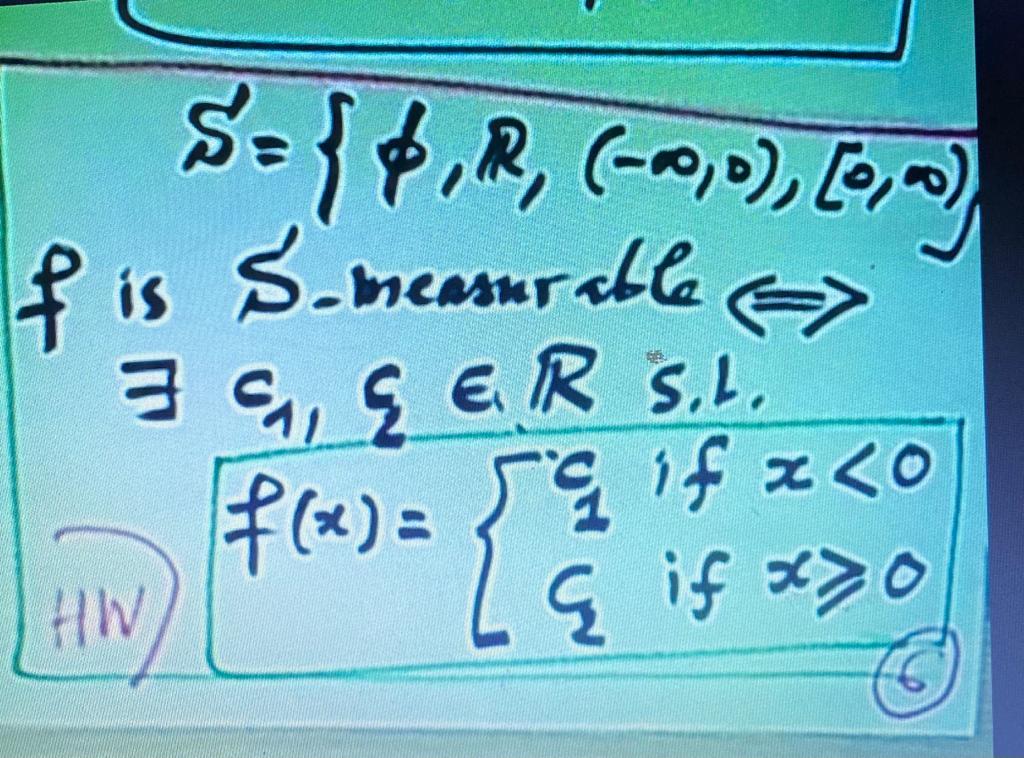 S = { ϕ, ℝ, (-∞,0), [0,∞)}
f is S-measurable ⟺
∃ c₁, c₂ ∈ ℝ s.t.
f(x) = { c₁ if x < 0
c₂ if x ⩾ 0
HW
6